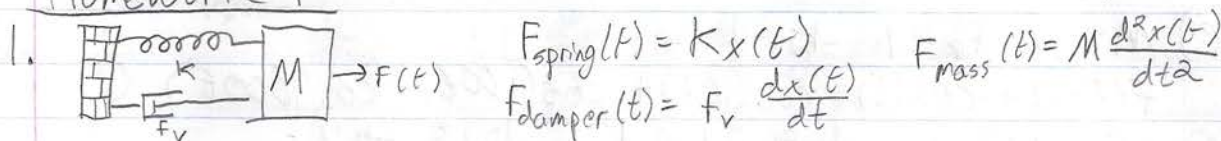 1.
K
M
→F(t)
f_v
F_spring(t) = K x(t)
F_damper(t) = f_v dx(t)/dt
F_mass (t) = M d²x(t)/dt2